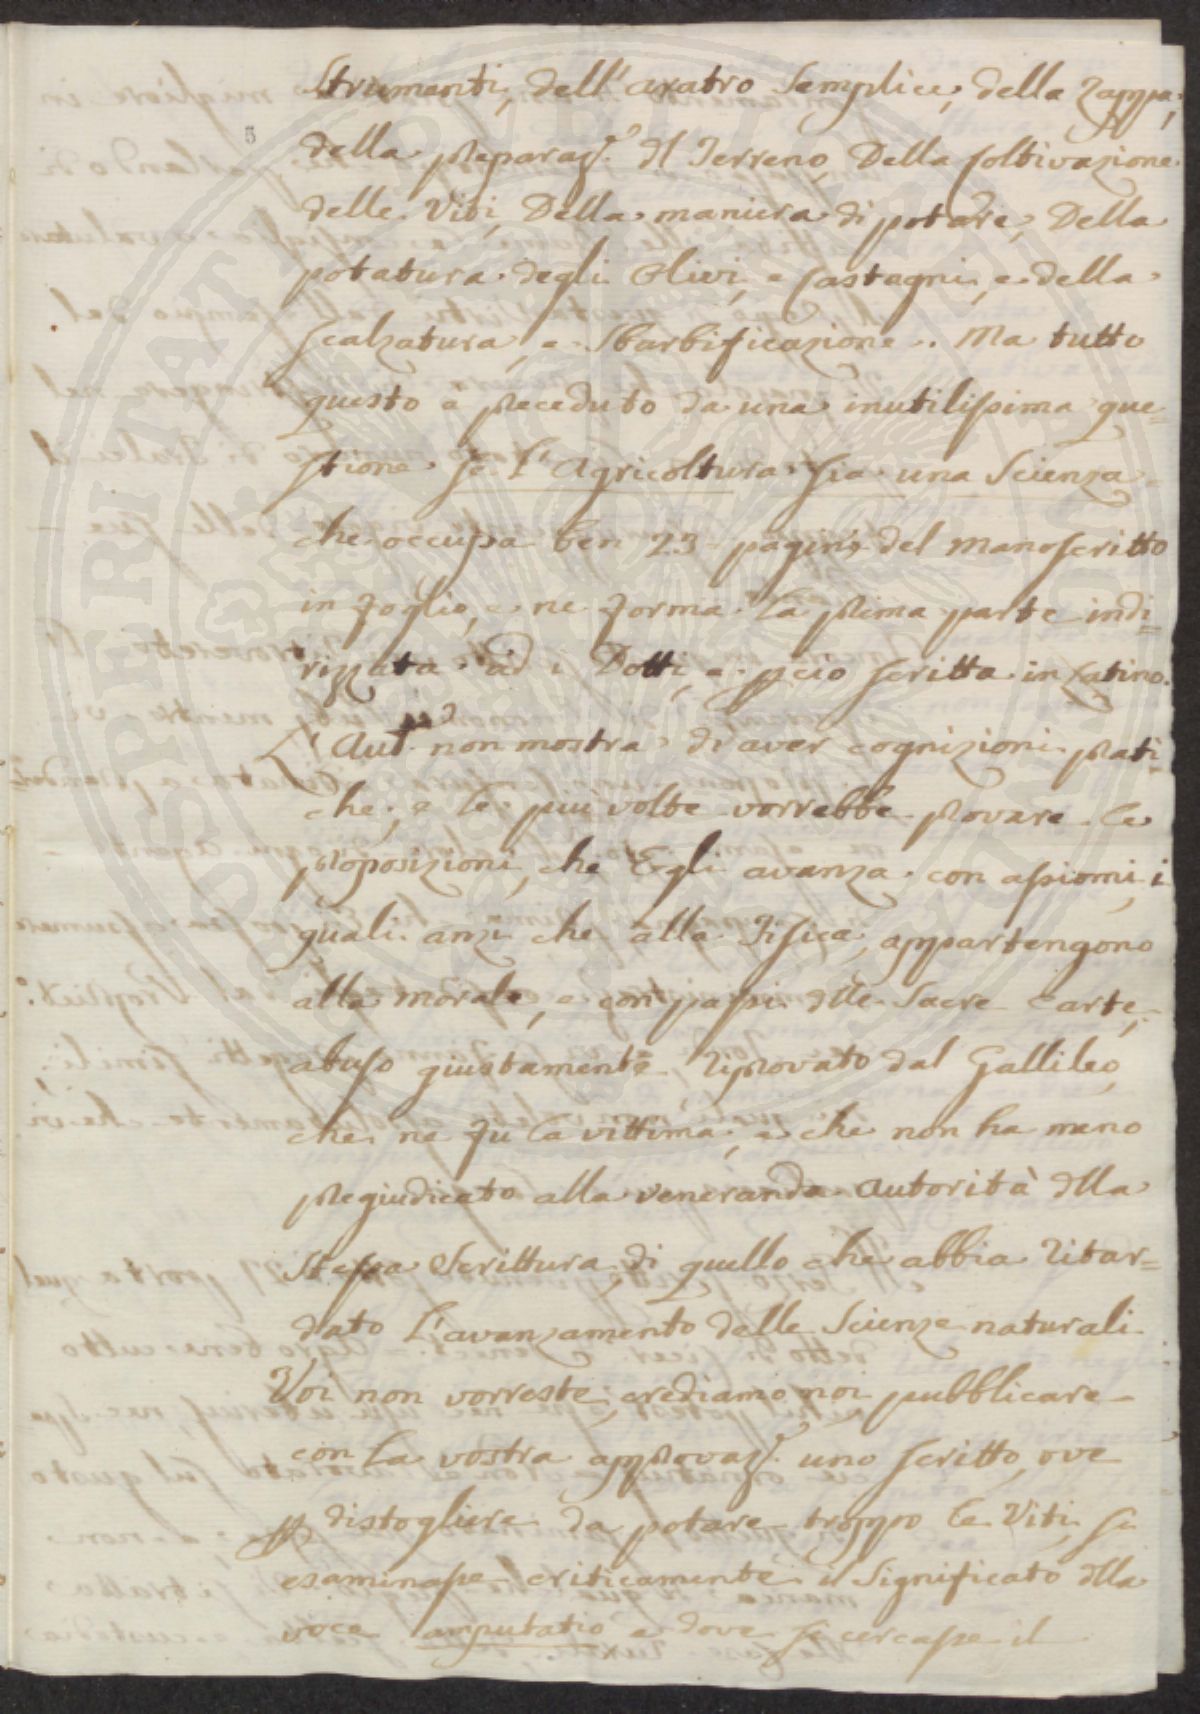 5
Strumenti, dell'aratro Semplice, della Zappa,
della preparaz.e dl Terreno, Della Coltivazione
delle Viti, Della maniera di potare, Della
potatura degli Olivi, e Castagni, e della
Scalzatura, e Sbarbificazione. Ma tutto
questo è preceduto da una inutilissima que=
stione se l'Agricoltura sia una Scienza
che occupa ben 23 pagine del Manoscritto
in foglio, e ne forma la prima parte indi=
rizzata ad i Dotti, e pciò scritta in Latino.
L'Aut.e non mostra di aver cognizioni prati=
che, e le più volte vorrebbe provare le
proposizioni, che Egli avanza con assiomi, i
quali anzi che alla Fisica, appartengono
alla morale, e con passi dlle Sacre Carte,
abuso giustamente riprovato dal Gallileo,
che ne fu la vittima, e che non ha meno
pregiudicato alla veneranda Autorità dlla
Stessa Scrittura, di quello che abbia ritar=
dato l'avanzamento delle Scienze naturali
Voi non vorreste, crediamo noi, pubblicare
con la vostra approvaz.e uno scritto, ove
p distogliere da potare troppo le Viti, si
esaminasse criticamente il Significato dlla
voce amputatio e dove si cercasse il